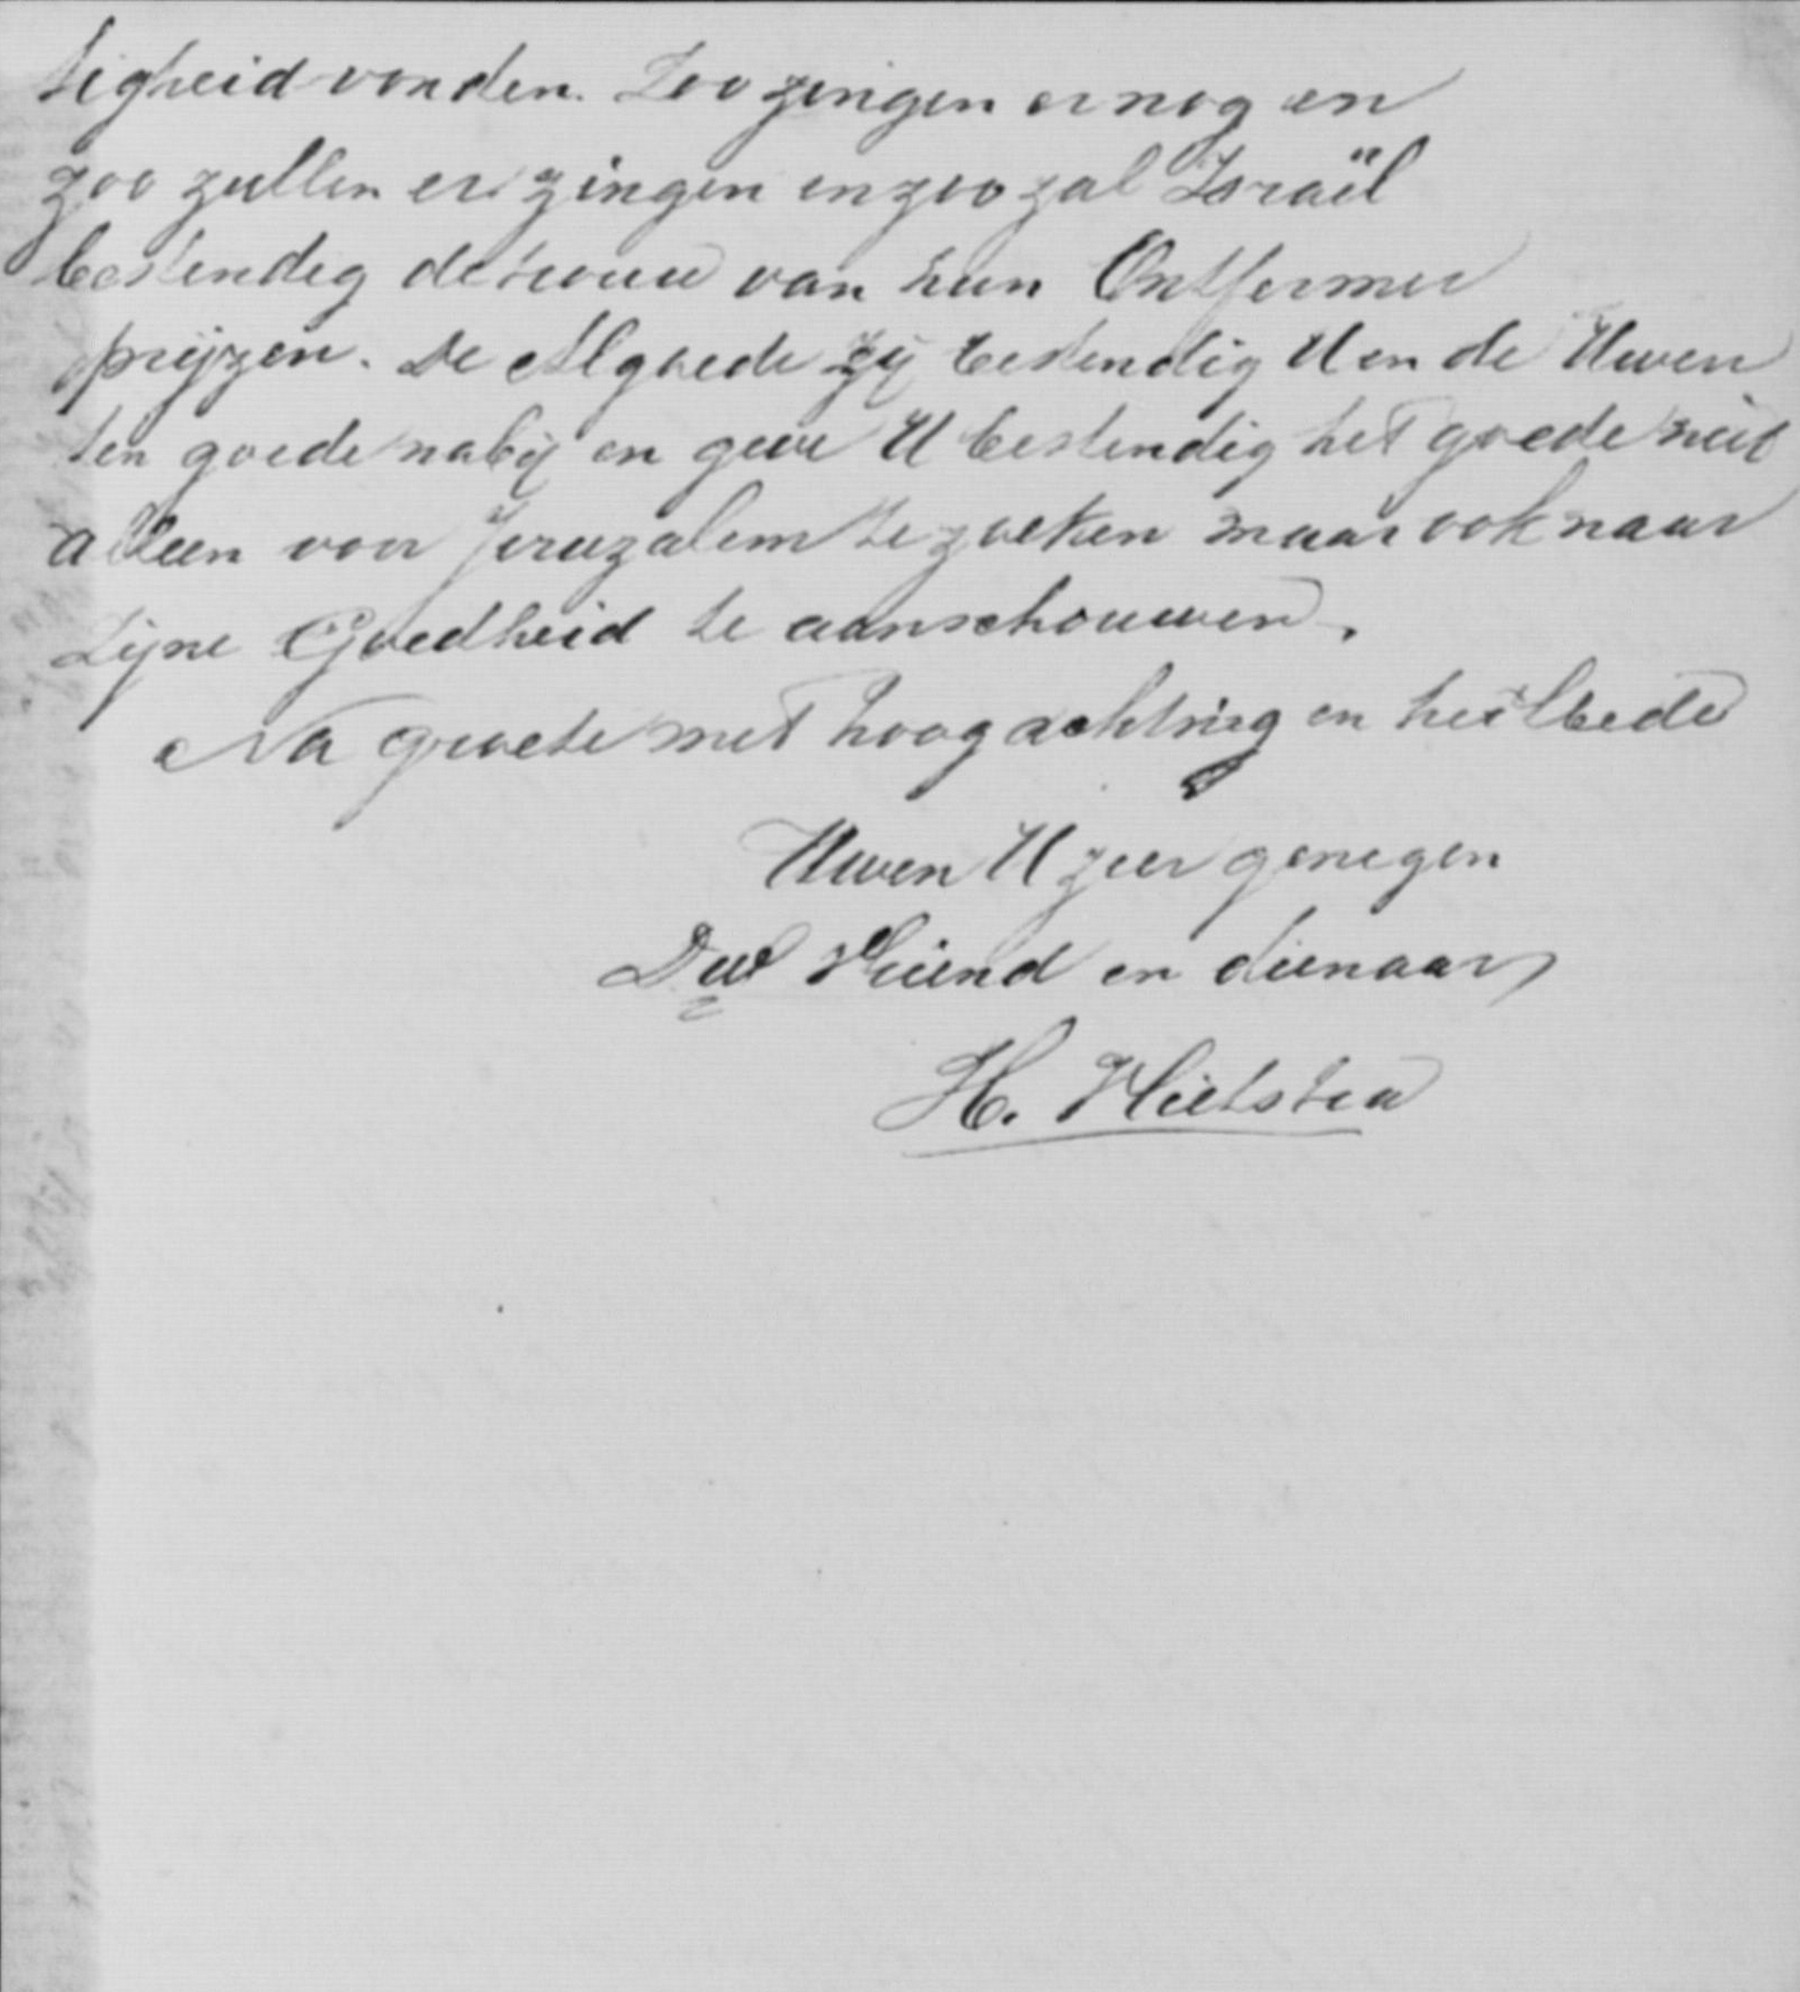 tigheid vonden. Zoo zingen er nog en
zoo zullen er zingen en zoo zal Israël
bestendig de trouw van hun Ontfermer
prijzen. De Algoede zij bestendig U en de Uwen
ten goede nabij en geve U bestendig het goede niet
alleen voor Jeruzalem te zoeken maar ook naar
Zijne Goedheid te aanschouwen.
Na groete met hoogachting en heilbede
Uwen U zeer genegen
Dw Vriend en dienaar
H. Hietstra